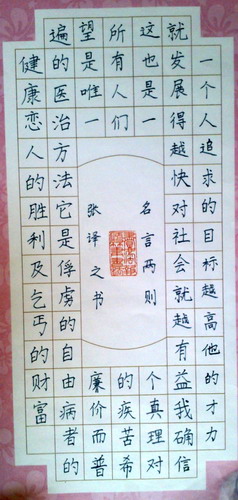 一个人追求的目标越高他的才力
就发展得越快对社会就越有益我确信
这也是一个真理对
所有人们的疾苦希
望是唯一廉价而普
遍的医治方法它是俘虏的自由病者的
健康恋人的胜利及乞丐的财富
名言两则
张译之书